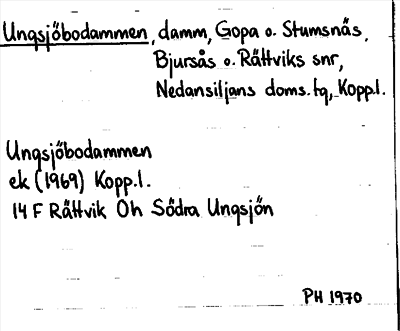 Ungsjöbodammen, damm, Gopa o. Stumsnäs,
Bjursås o. Rättviks snr,
Nedansiljans doms. fg, Kopp.l.
Ungsjöbodammen
ek (1969) Kopp.l.
14 F Rättvik Oh Södra Ungsjön
PH 1970